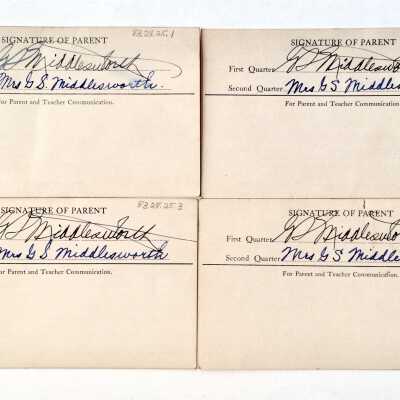 83.25.25.1
SIGNATURE OF PARENT
GS Middlesworth
Mrs G S Middlesworth.
For Parent and Teacher Communication.
SIGNATURE OF PARENT
First Quarter GS Middleswo
Second Quarter Mrs G S Middles
For Parent and Teacher Communication.
83.25.25.3
SIGNATURE OF PARENT
GS Middlesworth
Mrs G S Middlesworth
For Parent and Teacher Communication.
SIGNATURE OF PARENT
First Quarter GS Middleswo
Second Quarter Mrs G S Middle
For Parent and Teacher Communication.